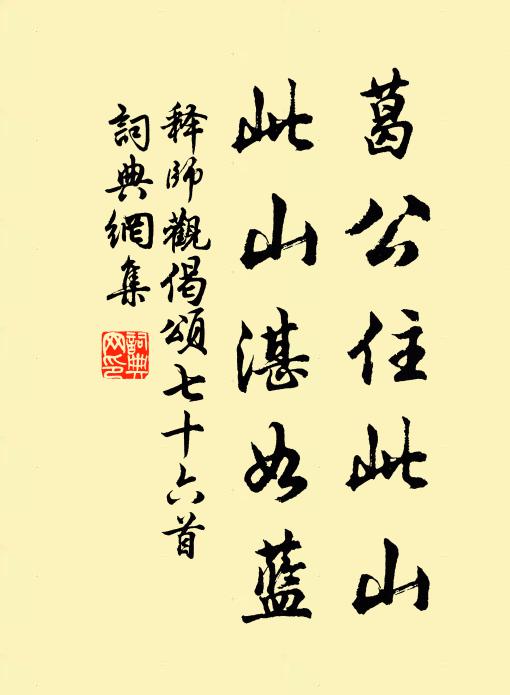 葛公住此山
此山湛如藍
释師觀偈頌七十六首
詞典網集
詞典網印